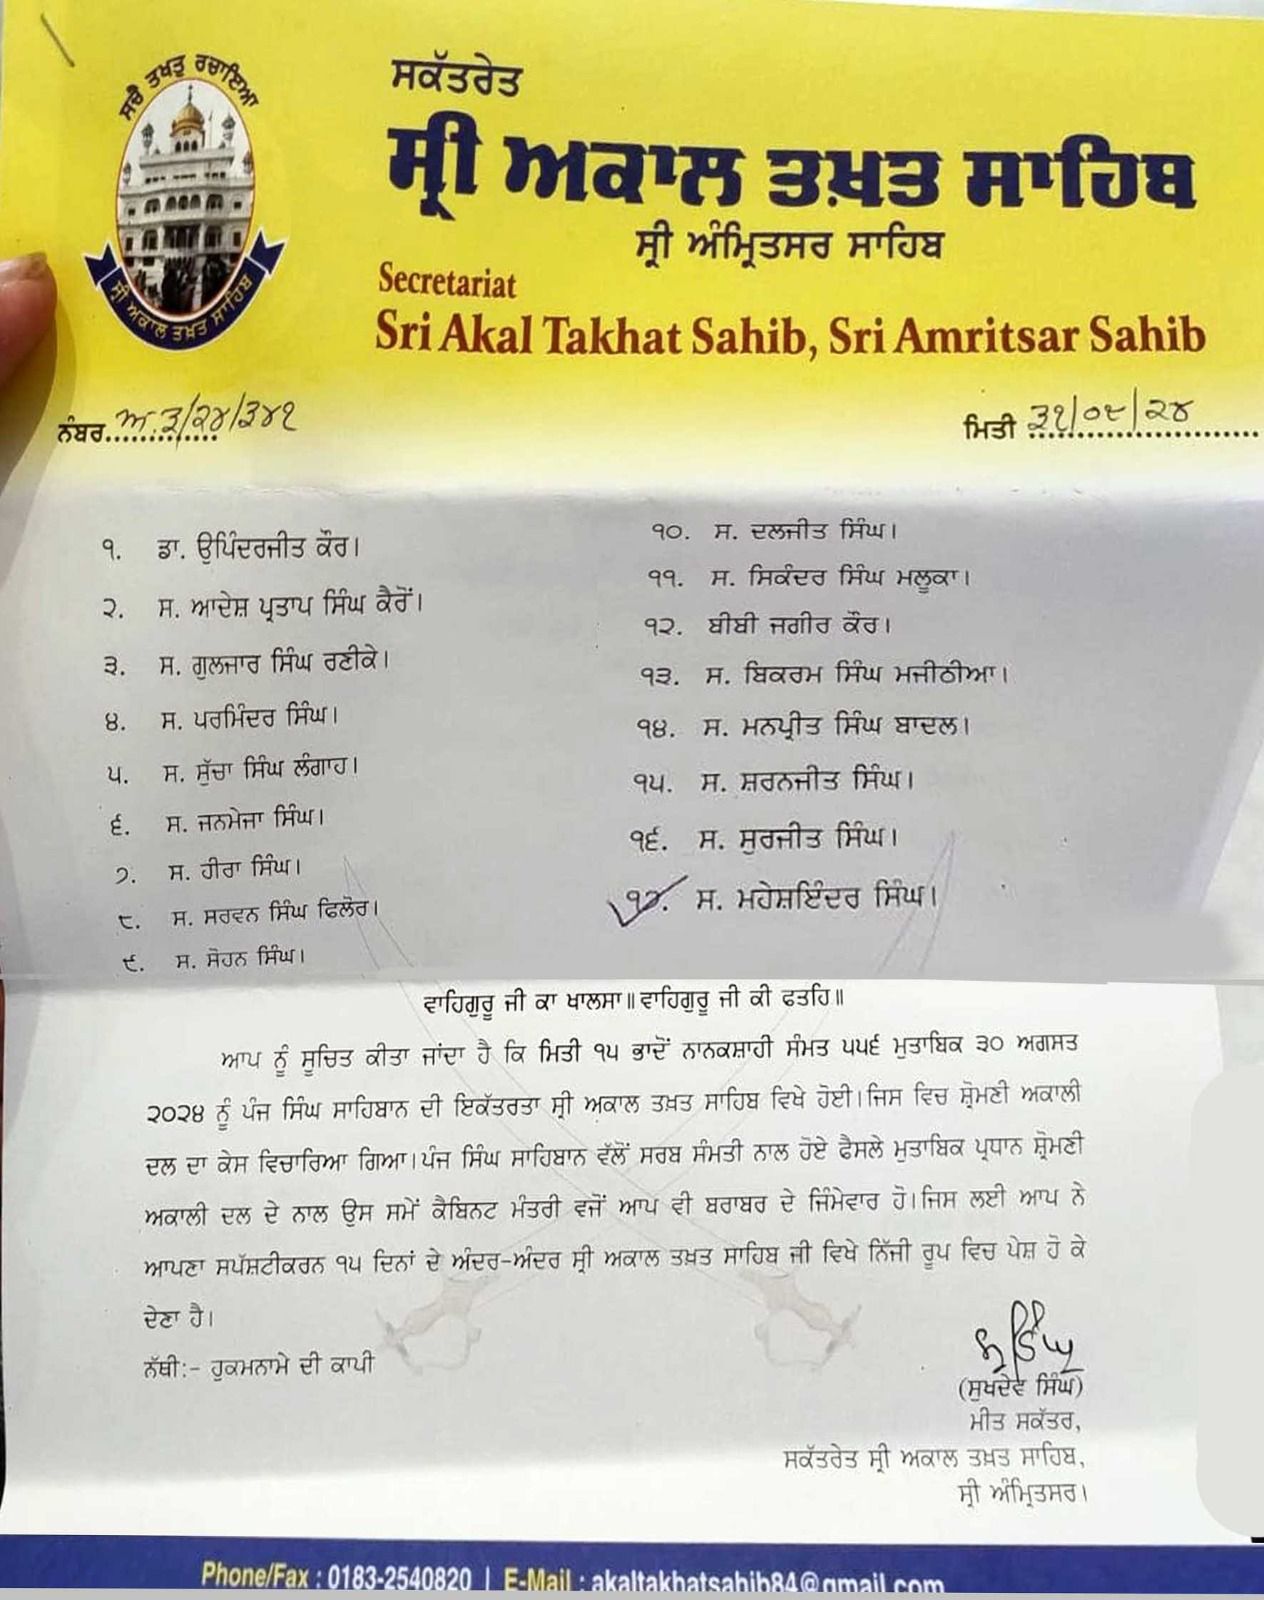 ਸਚੈ ਤਖਤੁ ਰਚਾਇਆ
ਸ੍ਰੀ ਅਕਾਲ ਤਖ਼ਤ ਸਾਹਿਬ
ਸਕੱਤਰੇਤ
ਸ੍ਰੀ ਅਕਾਲ ਤਖ਼ਤ ਸਾਹਿਬ
ਸ੍ਰੀ ਅੰਮ੍ਰਿਤਸਰ ਸਾਹਿਬ
Secretariat
Sri Akal Takhat Sahib, Sri Amritsar Sahib
ਨੰਬਰ ਅ.੩/੨੪/੩੪੧
ਮਿਤੀ ੩੧/੦੮/੨੪
੧. ਡਾ. ਉਪਿੰਦਰਜੀਤ ਕੌਰ।
੨. ਸ. ਆਦੇਸ਼ ਪ੍ਰਤਾਪ ਸਿੰਘ ਕੈਰੋਂ।
੩. ਸ. ਗੁਲਜਾਰ ਸਿੰਘ ਰਣੀਕੇ।
੪. ਸ. ਪਰਮਿੰਦਰ ਸਿੰਘ।
੫. ਸ. ਸੁੱਚਾ ਸਿੰਘ ਲੰਗਾਹ।
੬. ਸ. ਜਨਮੇਜਾ ਸਿੰਘ।
੭. ਸ. ਹੀਰਾ ਸਿੰਘ।
੮. ਸ. ਸਰਵਨ ਸਿੰਘ ਫਿਲੌਰ।
੯. ਸ. ਸੋਹਨ ਸਿੰਘ।
੧੦. ਸ. ਦਲਜੀਤ ਸਿੰਘ।
੧੧. ਸ. ਸਿਕੰਦਰ ਸਿੰਘ ਮਲੂਕਾ।
੧੨. ਬੀਬੀ ਜਗੀਰ ਕੌਰ।
੧੩. ਸ. ਬਿਕਰਮ ਸਿੰਘ ਮਜੀਠੀਆ।
੧੪. ਸ. ਮਨਪ੍ਰੀਤ ਸਿੰਘ ਬਾਦਲ।
੧੫. ਸ. ਸ਼ਰਨਜੀਤ ਸਿੰਘ।
੧੬. ਸ. ਸੁਰਜੀਤ ਸਿੰਘ।
੧੭. ਸ. ਮਹੇਸ਼ਇੰਦਰ ਸਿੰਘ।
ਵਾਹਿਗੁਰੂ ਜੀ ਕਾ ਖਾਲਸਾ॥ ਵਾਹਿਗੁਰੂ ਜੀ ਕੀ ਫਤਹਿ॥
ਆਪ ਨੂੰ ਸੂਚਿਤ ਕੀਤਾ ਜਾਂਦਾ ਹੈ ਕਿ ਮਿਤੀ ੧੫ ਭਾਦੋਂ ਨਾਨਕਸ਼ਾਹੀ ਸੰਮਤ ੫੫੬ ਮੁਤਾਬਿਕ ੩੦ ਅਗਸਤ
੨੦੨੪ ਨੂੰ ਪੰਜ ਸਿੰਘ ਸਾਹਿਬਾਨ ਦੀ ਇਕੱਤਰਤਾ ਸ੍ਰੀ ਅਕਾਲ ਤਖ਼ਤ ਸਾਹਿਬ ਵਿਖੇ ਹੋਈ। ਜਿਸ ਵਿਚ ਸ਼੍ਰੋਮਣੀ ਅਕਾਲੀ
ਦਲ ਦਾ ਕੇਸ ਵਿਚਾਰਿਆ ਗਿਆ। ਪੰਜ ਸਿੰਘ ਸਾਹਿਬਾਨ ਵੱਲੋਂ ਸਰਬ ਸੰਮਤੀ ਨਾਲ ਹੋਏ ਫੈਸਲੇ ਮੁਤਾਬਿਕ ਪ੍ਰਧਾਨ ਸ਼੍ਰੋਮਣੀ
ਅਕਾਲੀ ਦਲ ਦੇ ਨਾਲ ਉਸ ਸਮੇਂ ਕੈਬਿਨਟ ਮੰਤਰੀ ਵਜੋਂ ਆਪ ਵੀ ਬਰਾਬਰ ਦੇ ਜਿੰਮੇਵਾਰ ਹੋ। ਜਿਸ ਲਈ ਆਪ ਨੇ
ਆਪਣਾ ਸਪੱਸ਼ਟੀਕਰਨ ੧੫ ਦਿਨਾਂ ਦੇ ਅੰਦਰ-ਅੰਦਰ ਸ੍ਰੀ ਅਕਾਲ ਤਖ਼ਤ ਸਾਹਿਬ ਜੀ ਵਿਖੇ ਨਿੱਜੀ ਰੂਪ ਵਿਚ ਪੇਸ਼ ਹੋ ਕੇ
ਦੇਣਾ ਹੈ।
ਨੱਥੀ:- ਹੁਕਮਨਾਮੇ ਦੀ ਕਾਪੀ
(ਸੁਖਦੇਵ ਸਿੰਘ)
ਮੀਤ ਸਕੱਤਰ,
ਸਕੱਤਰੇਤ ਸ੍ਰੀ ਅਕਾਲ ਤਖ਼ਤ ਸਾਹਿਬ,
ਸ੍ਰੀ ਅੰਮ੍ਰਿਤਸਰ।
Phone/Fax : 0183-2540820 | E-Mail : akaltakhatsahib84@gmail.com